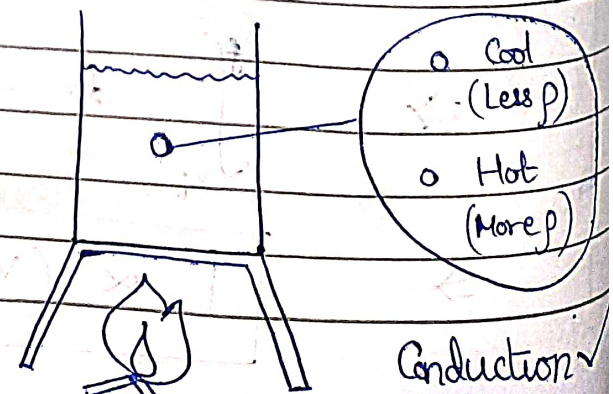 Cool
(Less ρ)
Hot
(More ρ)
Conduction ✓